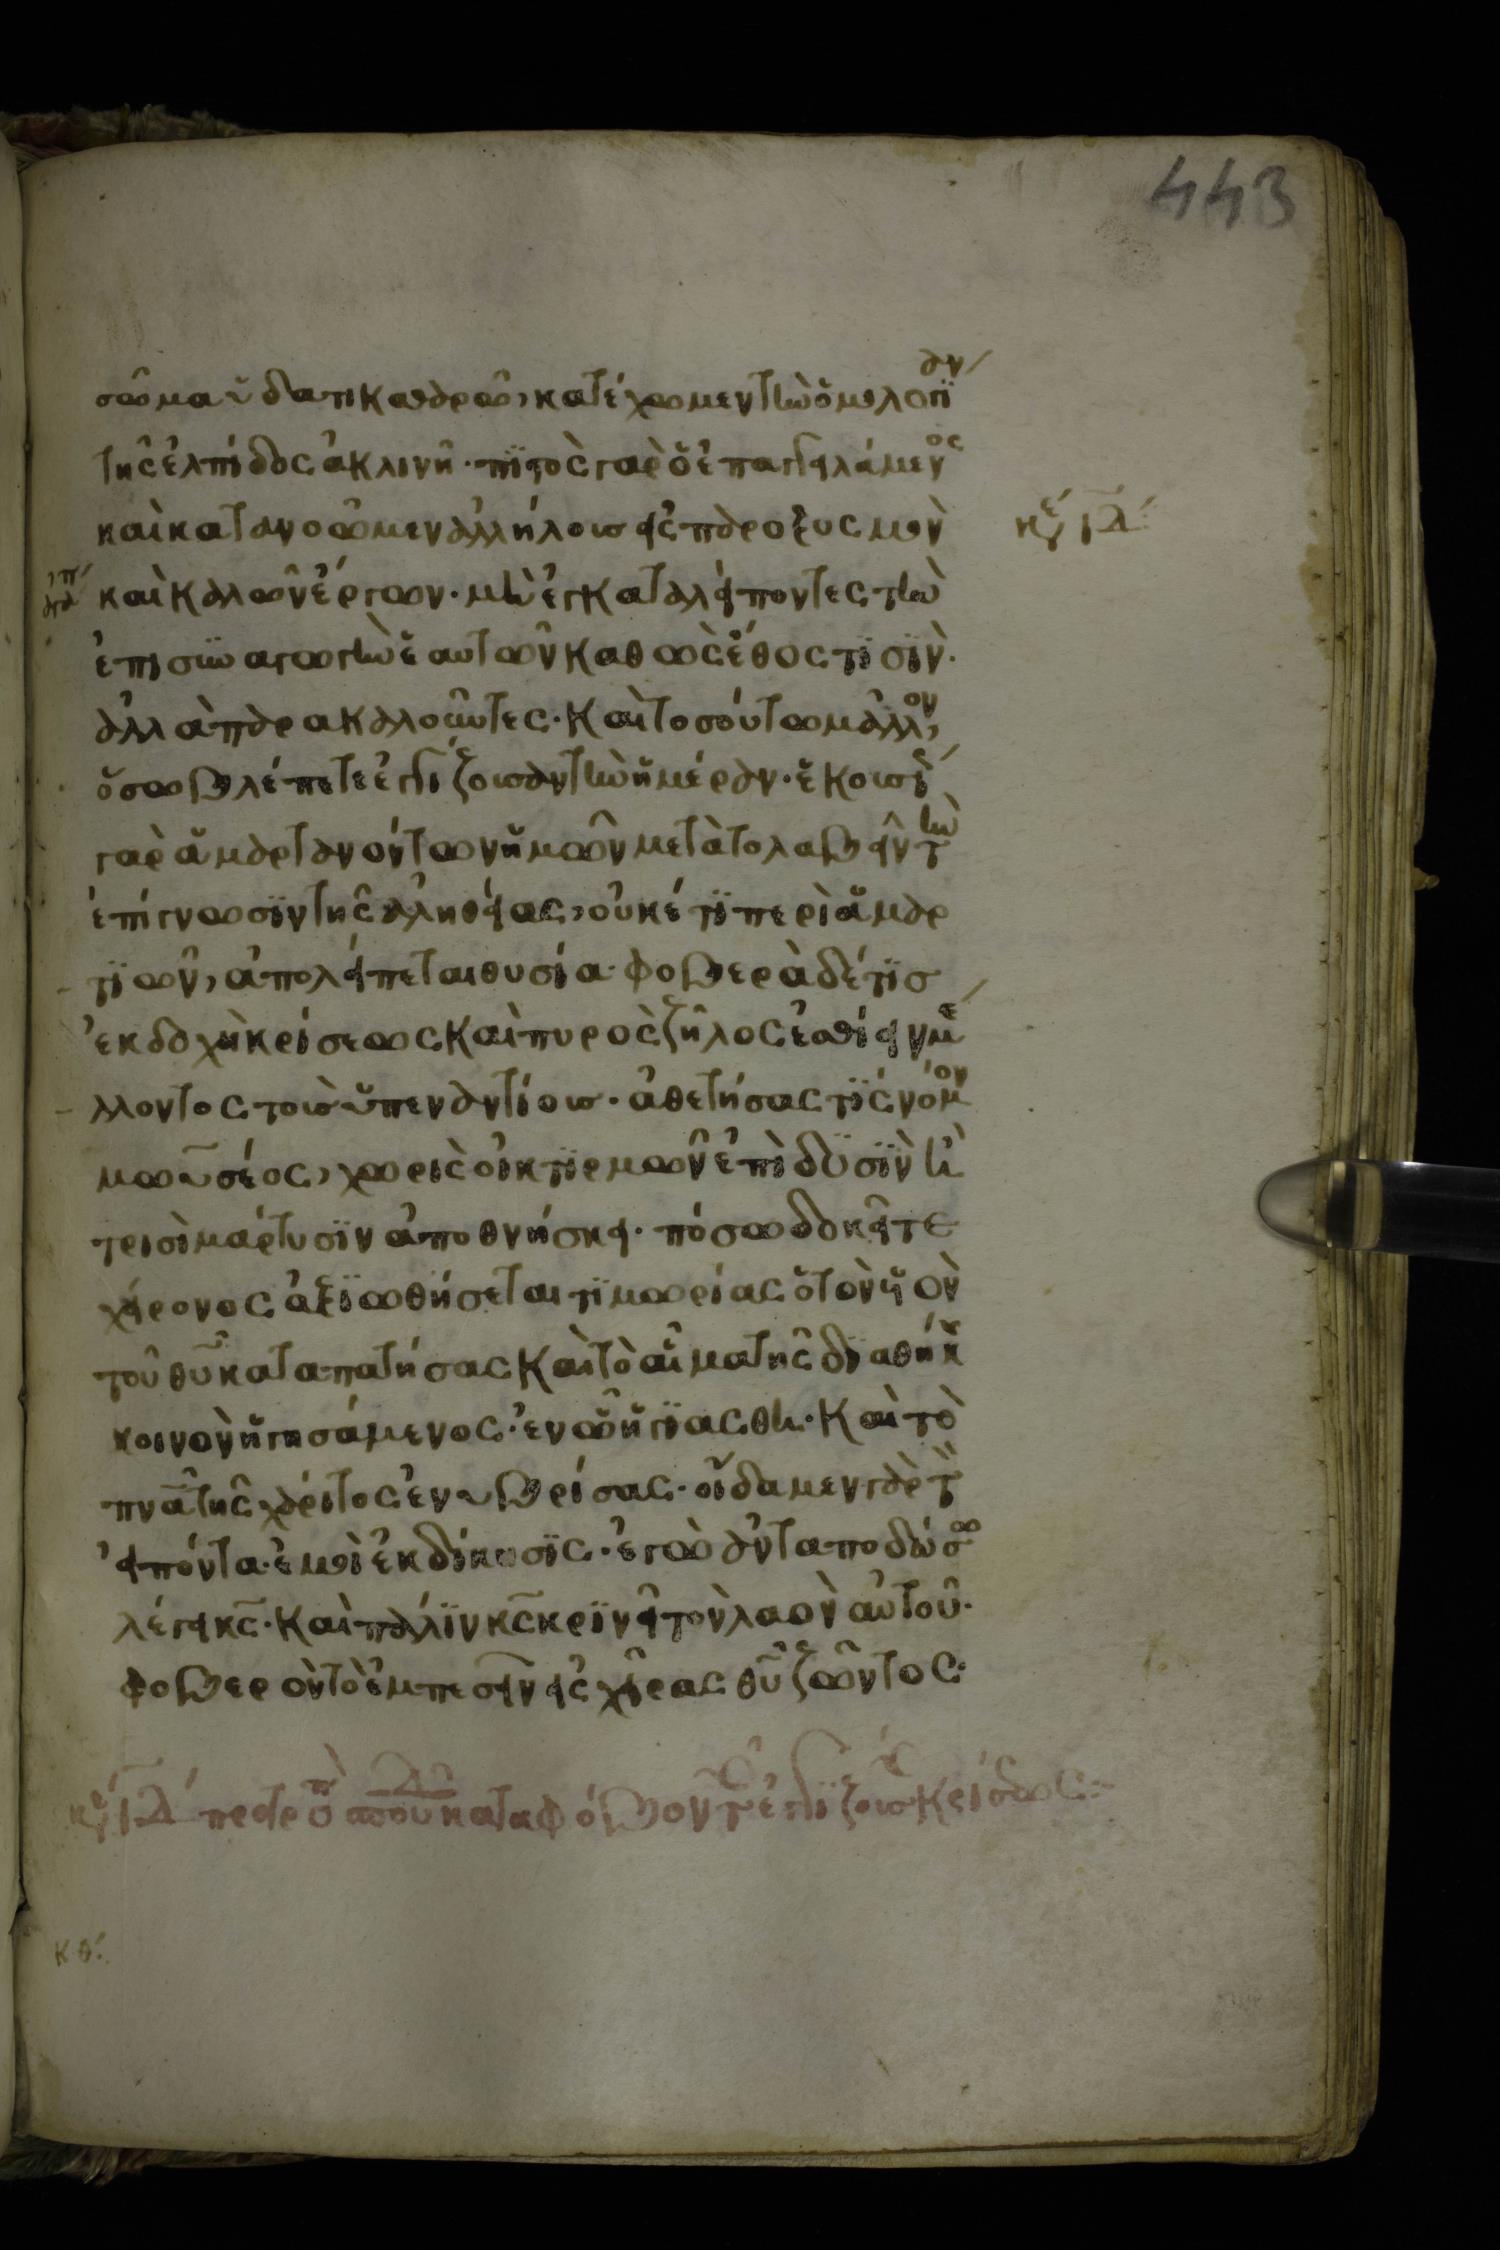 443
σῶμα ὕδατι καθαρῶ, κατέχωμεν τὴν ὁμολογίαν
τῆς ἐλπίδος ἀκλινῆ· πιστὸς γὰρ ὁ ἐπαγγειλάμενος
καὶ κατανοῶμεν ἀλλήλοις εἰς παροξυσμὸν κε ιδ
ἀγάπ καὶ καλῶν ἔργων· μὴ ἐγκαταλείποντες τὴν
ἐπισυναγωγὴν ἑαυτῶν καθὼς ἔθος τισὶν·
ἀλλὰ παρακαλοῦντες· καὶ τοσούτω μᾶλλον,
ὅσω βλέπετε ἐγγίζουσαν τὴν ἡμέραν· ἑκουσί
γὰρ ἁμαρτανόντων ἡμῶν μετὰ τὸ λαβεῖν τὴν
ἐπίγνωσιν τῆς ἀληθείας, οὐκέτι περὶ ἁμαρ
τιῶν, ἀπολείπεται θυσία· φοβερὰ δέ τις
ἐκδοχὴ κρίσεως καὶ πυρὸς ζῆλος ἐσθίειν μέ
λλοντος τοὺς ὑπεναντίους· ἀθετήσας τίς νόμον
μωϋσέος, χωρὶς οἰκτιρμῶν ἐπὶ δυσὶν ἢ
τρισὶ μάρτυσιν ἀποθνήσκει· πόσω δοκεῖτε
χείρονος ἀξιωθήσεται τιμωρίας ὁ τὸν υἱὸν
τοῦ θυ καταπατήσας καὶ τὸ αἷμα τῆς διαθήκης
κοινὸν ἡγησάμενος· ἐν ᾧ ἡγιάσθη· καὶ τὸ
πνα τῆς χάριτος ἐνυβρίσας· οἴδαμεν γὰρ τὸν
εἰπόντα· ἐμοὶ ἐκδίκησις· ἐγὼ ἀνταποδώσω
λέγει κς· καὶ πάλιν κς κρινεῖ τὸν λαὸν αὐτοῦ·
φοβερὸν τὸ ἐμπεσεῖν εἰς χεῖρας θυ ζῶντος·
κε ιδ κατὰ φόβον τῆς ἐγγιζούσης κρίσεως:
κθ: